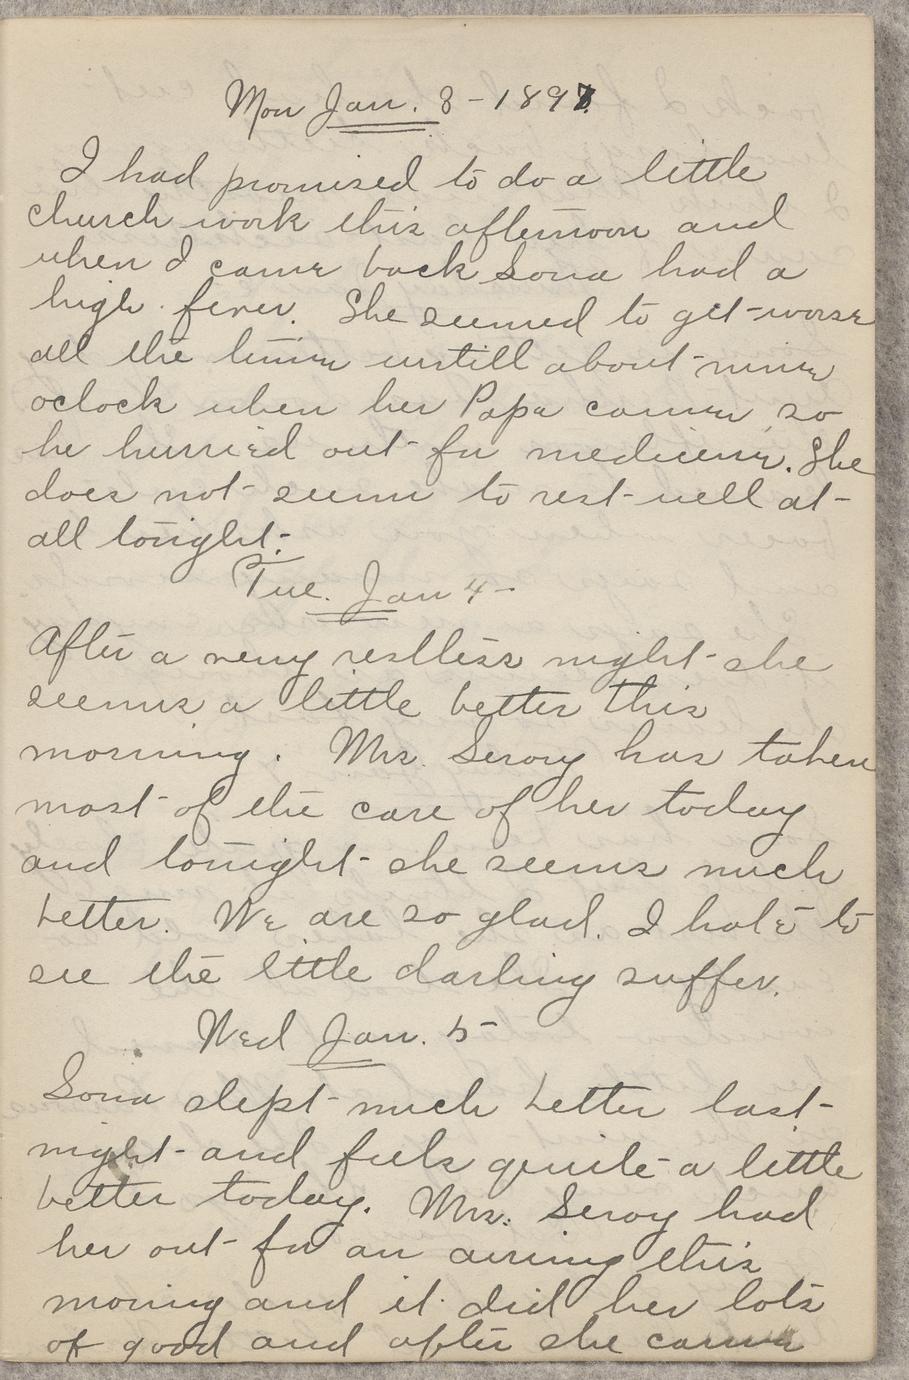 Mon Jan. 3 - 1898
I had promised to do a little
church work this afternoon and
when I came back Sona had a
high fever. She seemed to get worse
all the time untill about nine
oclock when her Papa came, so
he hurried out for medicine. She
does not seem to rest well at
all tonight.
Tue. Jan 4 -
After a very restless night she
seems a little better this
morning. Mrs. Seroy has taken
most of the care of her today
and tonight she seems much
better. We are so glad. I hate to
see the little darling suffer.
Wed Jan. 5 -
Sona slept much better last
night and feels quite a little
better today. Mrs. Seroy had
her out for an airing this
moring and it did her lots
of good and after she came